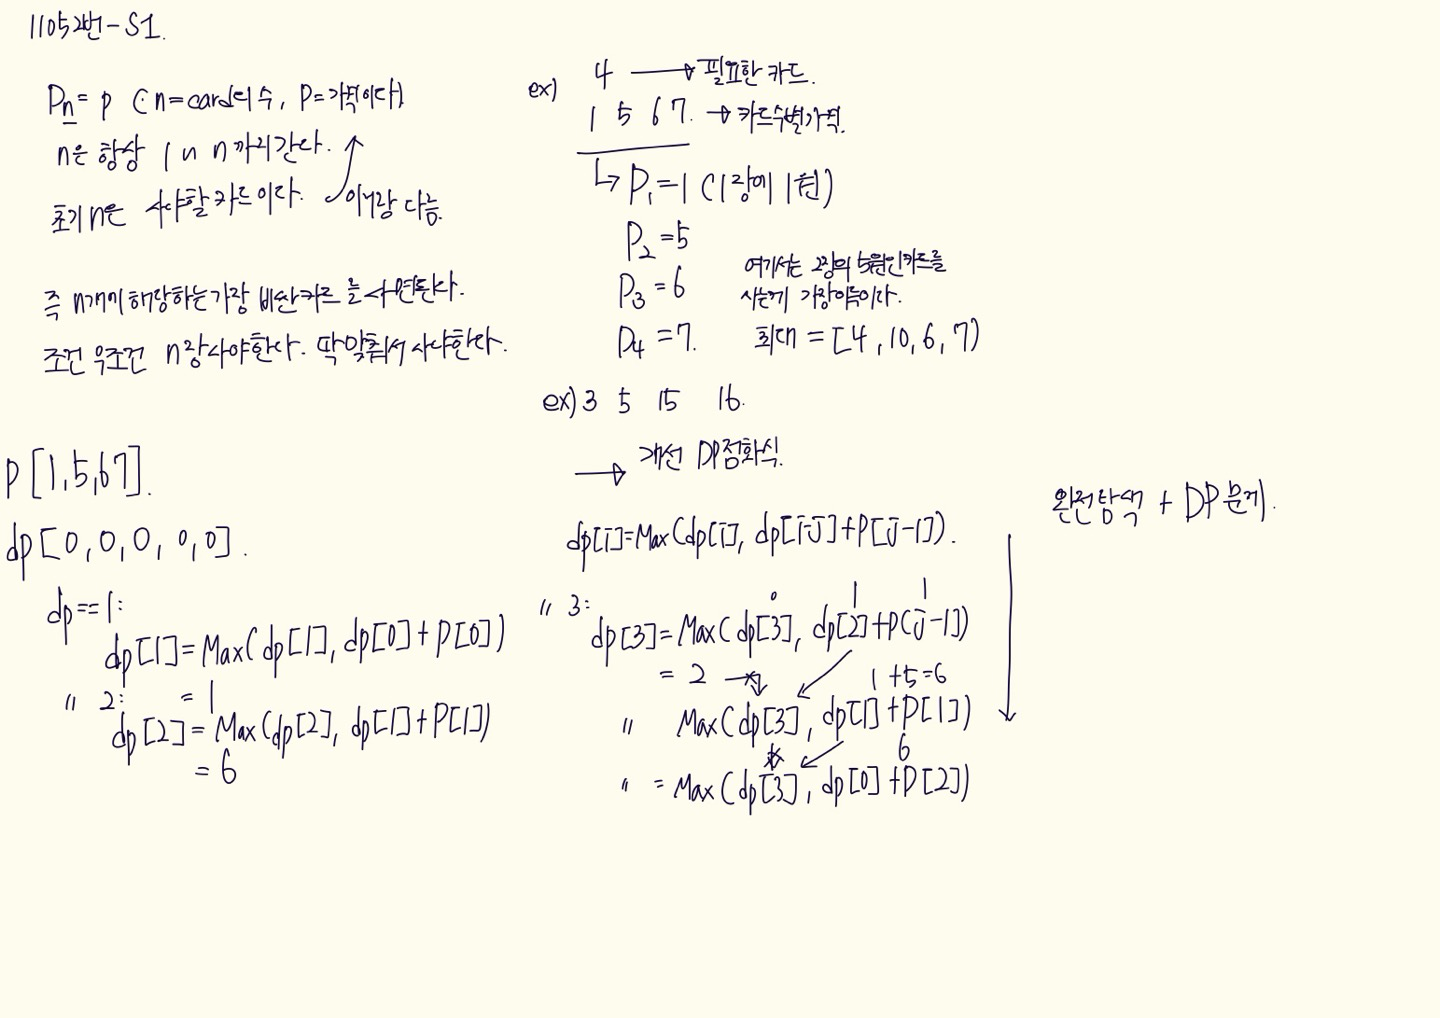 11052번 - S1.
Pn = p (∵ n = card의 수, P = 가격이다)
n은 항상 1 n n까지 간다.
초기 n은 사야할 카드이다. 이거랑 다름.
즉 n개에 해당하는 가장 비싼 카드를 사면된다.
조건 무조건 n장 사야한다. 딱 맞춰서 사야한다.
ex) 4 → 필요한 카드.
1 5 6 7. → 카드수별 가격.
↳ P1 = 1 (1장에 1원)
P2 = 5
P3 = 6
P4 = 7.
여기서는 2장의 5원인 카드를
사는게 가장 이득이다.
최대 = [4, 10, 6, 7)
ex) 3 5 15 16.
→ 개선 DP점화식.
P [1, 5, 6 7].
dp [0, 0, 0, 0, 0].
dp == 1:
dp[1] = Max( dp[1], dp[0] + P[0])
= 1
" 2:
dp[2] = Max(dp[2], dp[1] + P[1])
= 6
dp[i] = Max(dp[i], dp[i-j] + P[j-1]).
" 3:
0 1 1
dp[3] = Max( dp[3], dp[2] + P(j-1])
= 2 →
1 + 5 = 6
" Max(dp[3], dp[1] + P[1])
6
" = Max(dp[3], dp[0] + P[2])
완전탐색 + DP 문제.